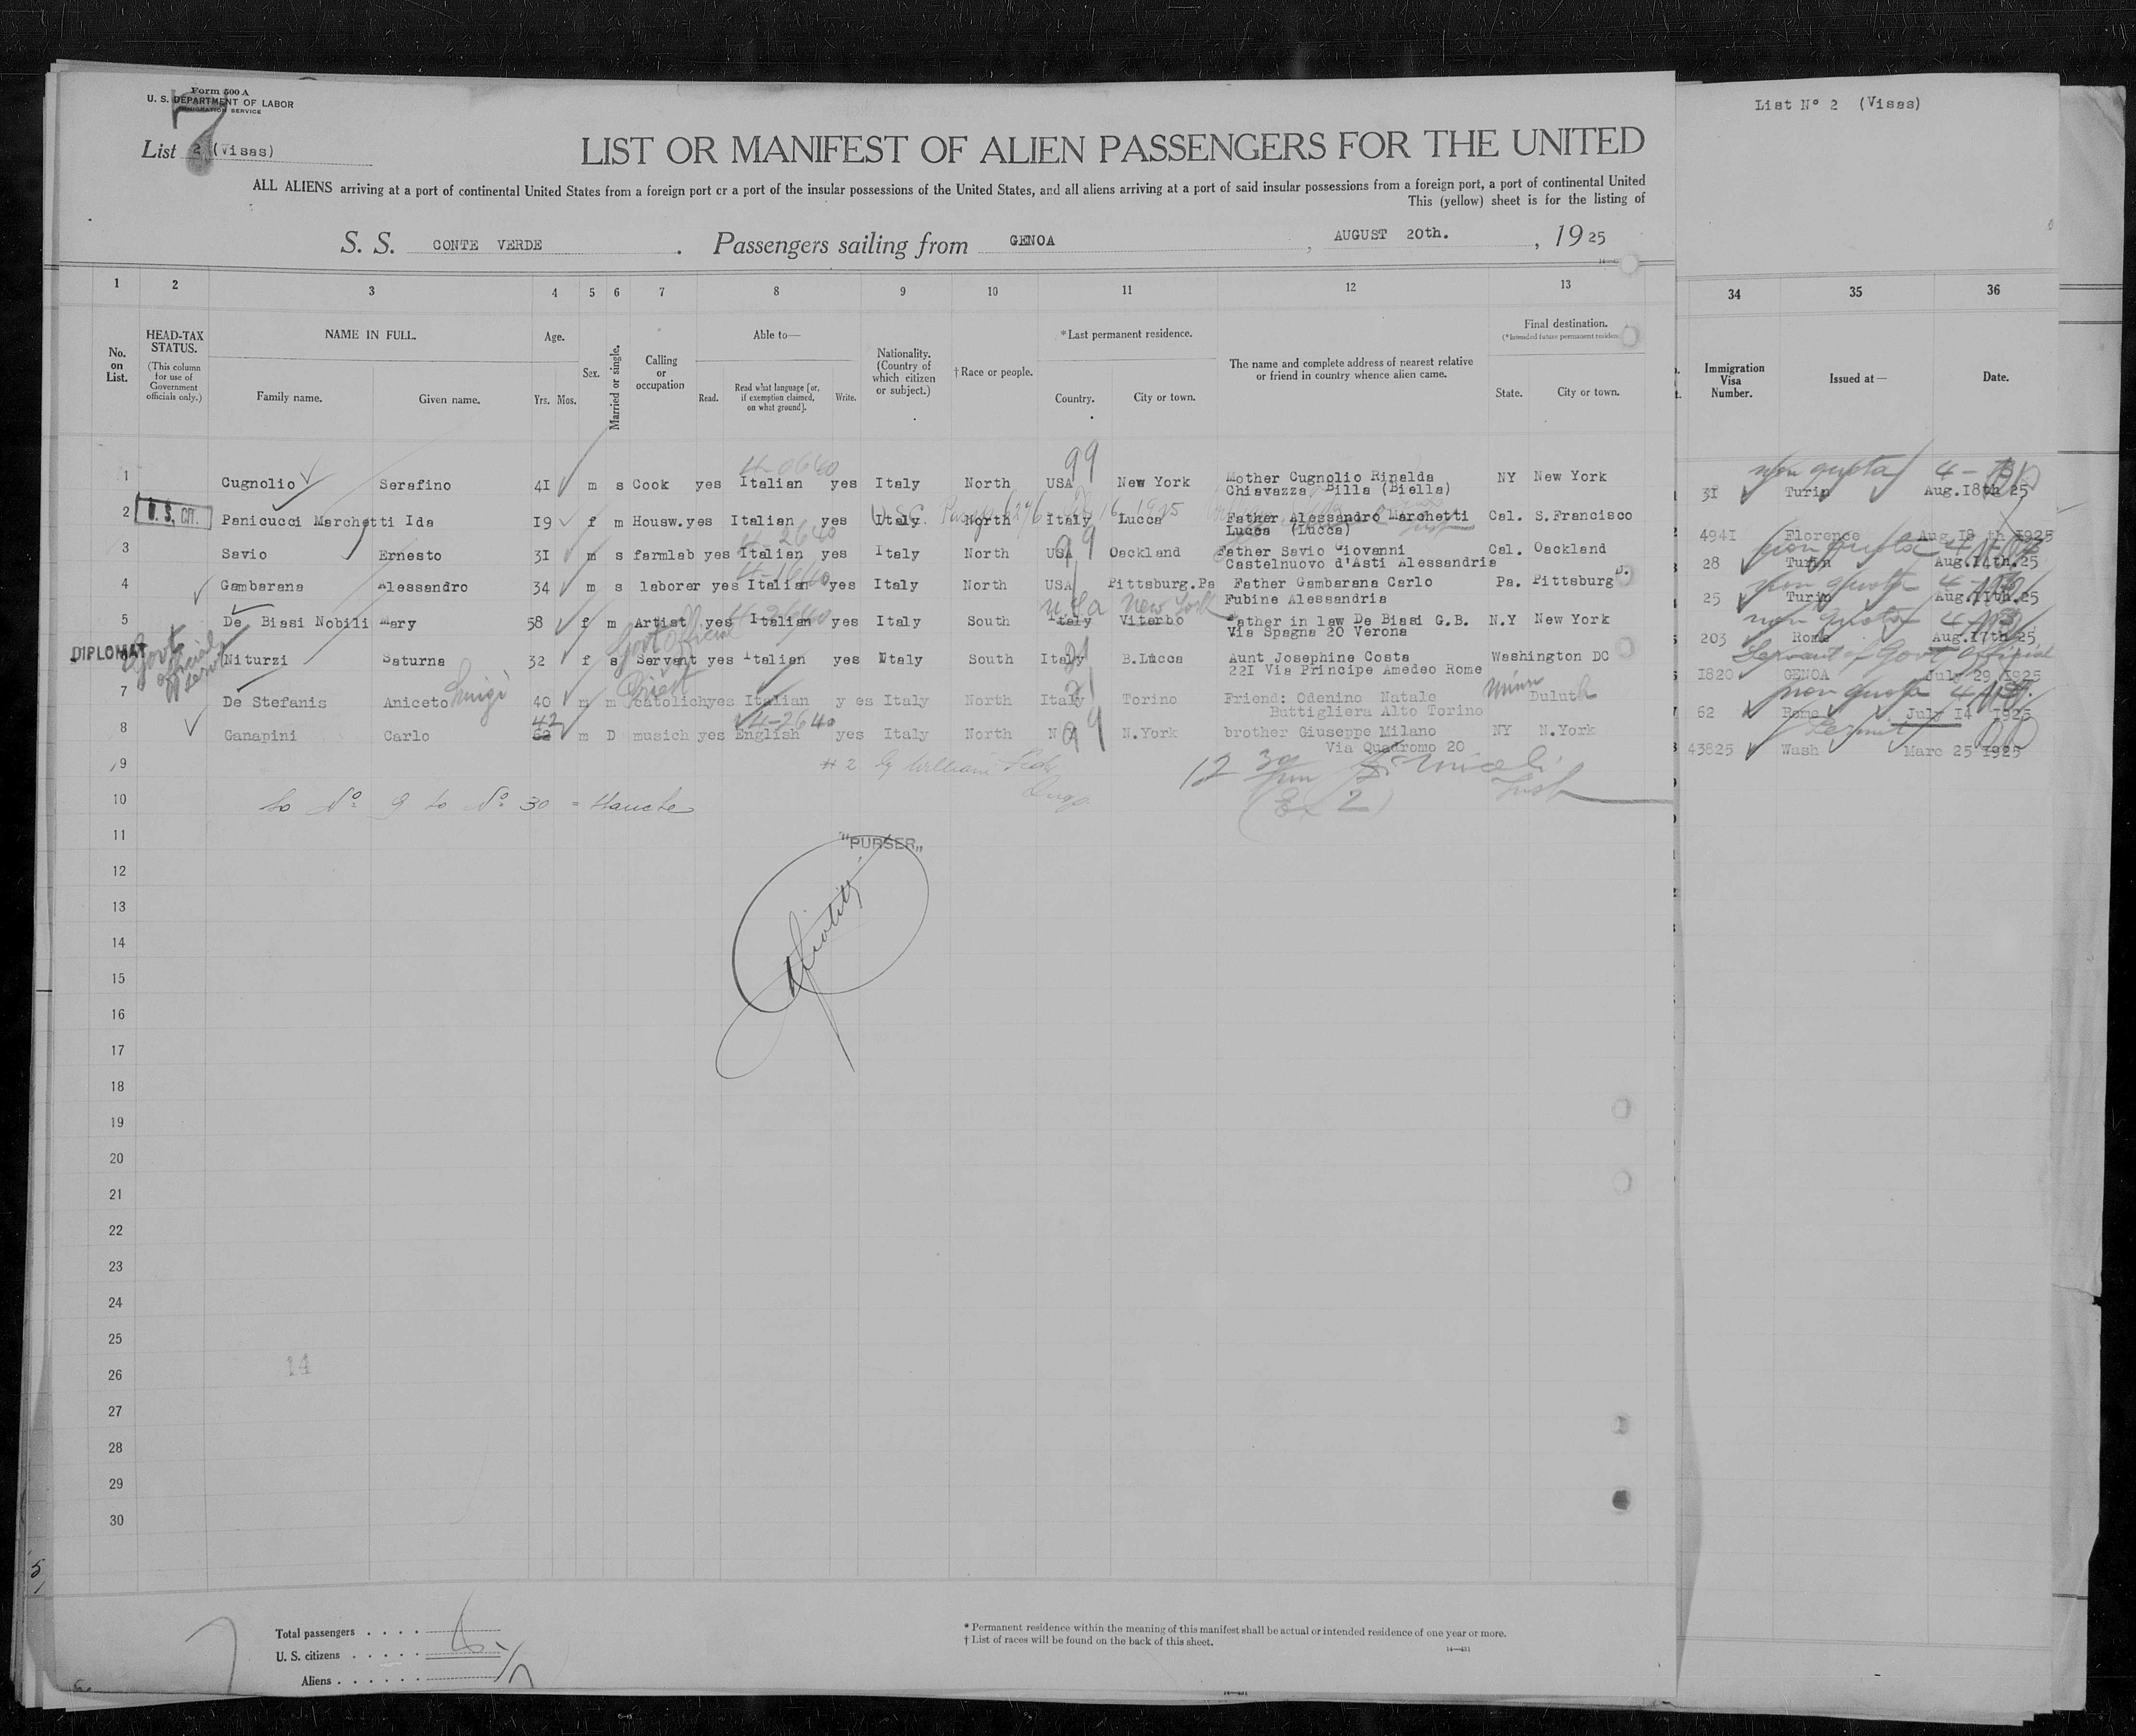 Form 500 A
U. S. DEPARTMENT OF LABOR
IMMIGRATION SERVICE
7
List 2 (Visas)
LIST OR MANIFEST OF ALIEN PASSENGERS FOR THE UNITED
ALL ALIENS arriving at a port of continental United States from a foreign port or a port of the insular possessions of the United States, and all aliens arriving at a port of said insular possessions from a foreign port, a port of continental United
This (yellow) sheet is for the listing of
S. S. CONTE VERDE. Passengers sailing from GENOA, AUGUST 20th., 1925
List Nº 2 (Visas)
1 2 3 4 5 6 7 8 9 10 11 12 13 34 35 36
No. on List.
HEAD-TAX STATUS.
(This column for use of Government officials only.)
NAME IN FULL.
Family name. Given name.
Age.
Yrs. Mos.
Sex.
Married or single.
Calling or occupation
Able to—
Read. Read what language [or, if exemption claimed, on what ground]. Write.
Nationality. (Country of which citizen or subject.)
†Race or people.
*Last permanent residence.
Country. City or town.
The name and complete address of nearest relative or friend in country whence alien came.
Final destination.
(*Intended future permanent residence)
State. City or town.
Immigration Visa Number.
Issued at—
Date.
4-0640 99 non quota 4-
1 Cugnolio Serafino 41 m s Cook yes Italian yes Italy North USA New York Mother Cugnolio Rinalda NY New York
Chiavazza Billa (Biella) 31 Turin Aug.18th 25
U.S. CIT.
2 Panicucci Marchetti Ida 19 f m Housw. yes Italian yes Italy North Italy Lucca Father Alessandro Marchetti Cal. S.Francisco
U.S.C. 1925
Lucca (Lucca) 4941 Florence Aug 18 th 1925
4-2640 99 non quota
3 Savio Ernesto 31 m s farmlab yes Italian yes Italy North USA Oackland Father Savio Giovanni Cal. Oackland
Castelnuovo d'Asti Alessandria 28 Turin Aug.14th.25
non quota
4 Gambarana Alessandro 34 m s laborer yes Italian yes Italy North USA Pittsburg.Pa Father Gambarana Carlo Pa. Pittsburg
Fubine Alessandria 25 Turin Aug.11th.25
USa New York non quota
5 De Biasi Nobili Mary 58 f m Artist yes Italian yes Italy South Italy Viterbo Father in law De Biasi G.B. N.Y New York
Via Spagna 20 Verona 203 Rome Aug.17th 25
DIPLOMAT
Govt official servt
Govt Official Servant of Govt Official
6 Niturzi Saturna 32 f s Servant yes Italian yes Italy South Italy B.Lucca Aunt Josephine Costa Washington DC
221 Via Principe Amedeo Rome 1820 GENOA July 29 1925
Luigi Priest Minn non quota
7 De Stefanis Aniceto 40 m m catolich yes Italian y es Italy North Italy Torino Friend: Odenino Natale Duluth
Buttigliera Alto Torino 62 Rome July 14 1925
42 4-2640 99 Permit
8 Ganapini Carlo 62 m D musich yes English yes Italy North N.York brother Giuseppe Milano NY N.York
Via Quadromo 20 43825 Wash Marc 25 1925
9
10
to Nº 9 to Nº 30 =
"PURSER"
11
12
13
14
15
16
17
18
19
20
21
22
23
24
25
26
14
27
28
29
30
Total passengers . . . .
U. S. citizens . . . . .
Aliens . . . . . .
* Permanent residence within the meaning of this manifest shall be actual or intended residence of one year or more.
† List of races will be found on the back of this sheet.
14—431